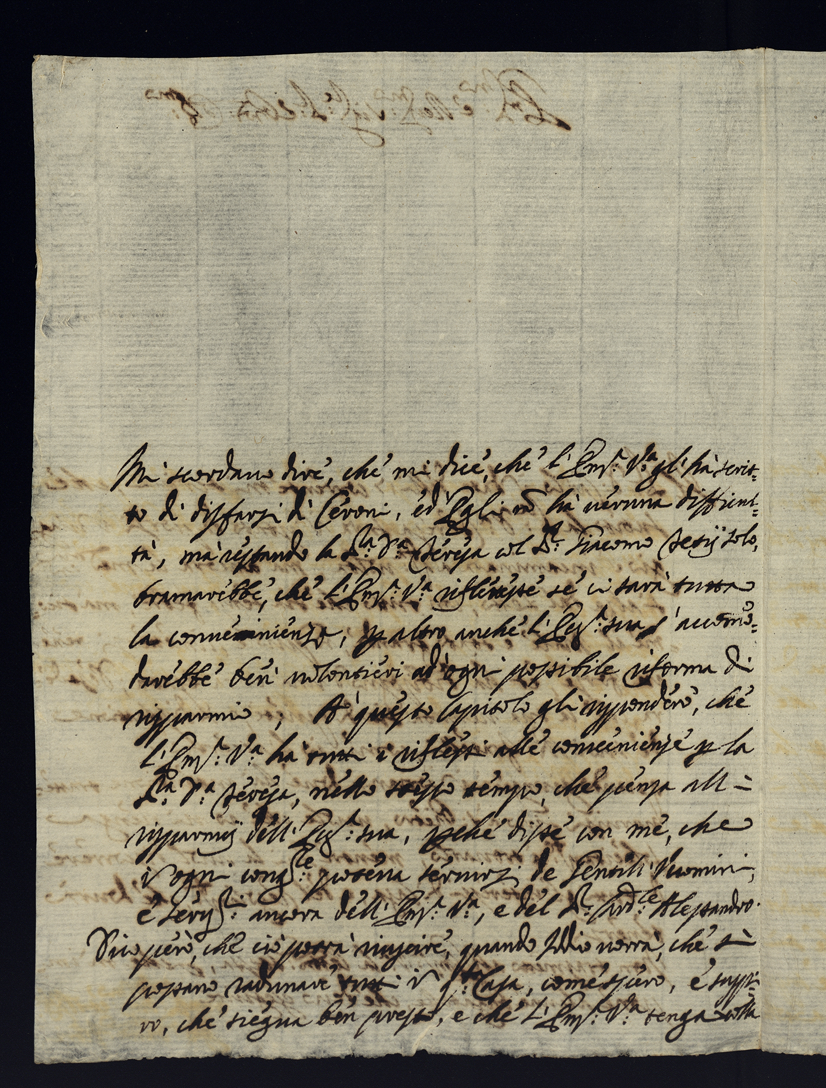 Mi scordavo dire, che mi dice, che l'Em.ª V.ª gli hà scrit-
to di disfarsi di Ceroni, ed Egli nõ hà veruna difficul-
tà, mà restando la S.ra D.ª Teresa col S.r Giacomo solo,
bramarebbe, che l'Em.ª V.ª riflettesse se ci sarà tutta
la conveninenza, p altro anche l'Ecc.ª sua s'accomo-
darebbe ben volontieri ad ogni possibile riforma di
risparmio; A questo Capitolo gli risponderò, che
l'Em.ª V.ª hà tutti i riflessi alle convenienze p la
S.ra D.ª Teresa, nello stesso tempo, che pensa all-
risparmij dell'Ecc.ª sua, pche disse con me, che
in ogni cong.le poteva servirsi de Gentil'Vuomini,
e ancora dell'Em.ª V.ª, e del S.r Card.le Alessandro.
Dico però, che ciò potrà riuscire, quando Iddio vorrà, che si
possano radunare tutti in q.ta Casa, come spero, e suppli-
co, che siegua ben presto, e che l'Em.ª V.ª tenga